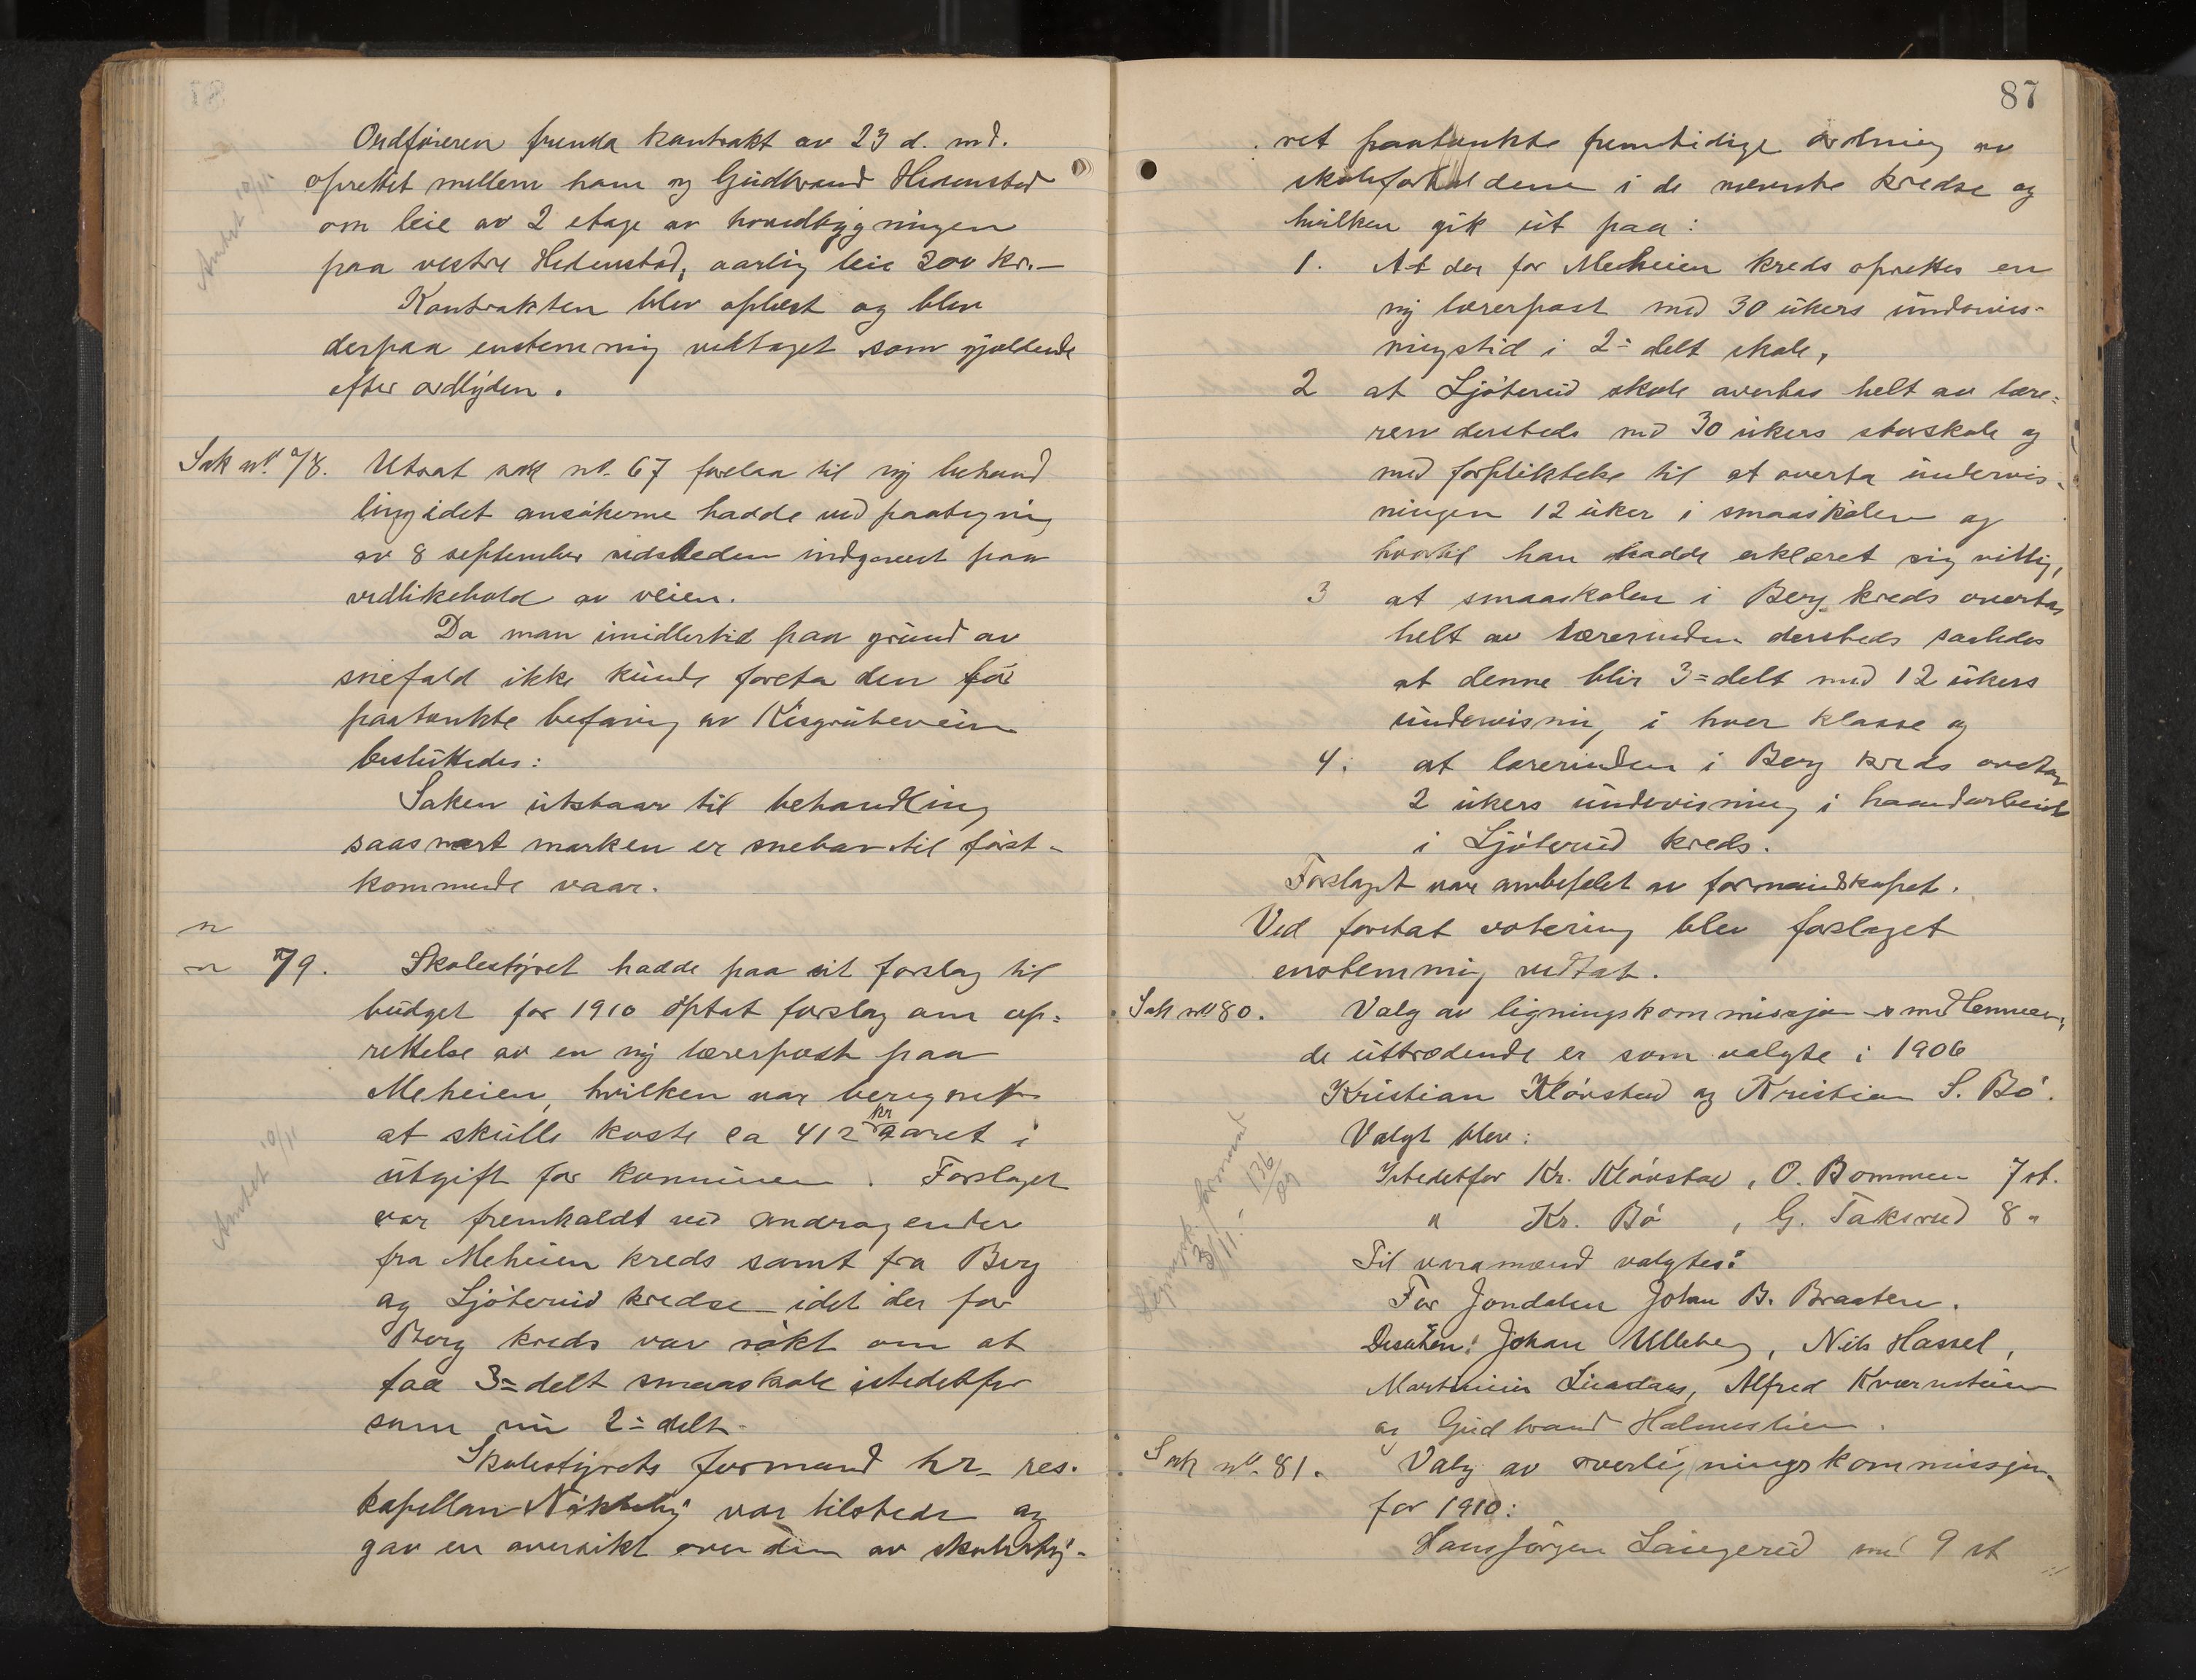 Ordføreren fremla kontrakt av 23 d. md.
oprettet mellem ham og Gudbrand Hedenstad
om leie av 2 etage av hovedbygningen
paa vestre Hedenstad, aarlig leie 200 kr.—
Kontrakten blev oplæst og blev
derpaa enstemmig vedtaget som gjældende
efter ordlyden.
Sak nº 78. Utsat sak nº 67 forelaa til ny behand
ling idet ansøkerne hadde ved paategning
av 8 september sidstleden indgaaet paa
vedlikehold av veien.
Da man imidlertid paa grund av
snefald ikke kunde foreta den før
paatænkte befaring av Kisgrubeveien
besluttedes:
Saken utstaar til behandling
saasnart marken er snebar til først-
kommende vaar.
" " 79. Skolestyret hadde paa sit forslag til
budget for 1910 optat forslag om op=
rettelse av en ny lærerpost paa
Meheien, hvilken var beregnet
at skulle koste ca 412 kr aaret i
utgift for kommunen. Forslaget
var fremkaldt ved andragender
fra Meheien kreds samt fra Berg
og Ljøterud kredse idet der for
Berg kreds var søkt om at
faa 3=delt smaaskole istedetfor
som nu 2=delt.
Skolestyrets formand hr. res.
kapellan Nøkleby var tilstede og
gav en oversikt over den av skolesty-
Amtet 10/11
Amtet 10/11
87
ret paatænkte fremtidige ordning av
skoleforholdene i de nævnte kredse og
hvilken gik ut paa:
1. At der for Meheien kreds oprettes en
ny lærerpost med 30 ukers undervis-
ningstid i 2=delt skole,
2 at Ljøterud skole overtas helt av lære=
ren dersteds med 30 ukers storskole og
med forpliktelse til at overta undervis-
ningen 12 uker i smaaskolen og
hvortil han hadde erklæret sig villig,
3 at smaaskolen i Berg kreds overtas
helt av lærerinden dersteds saaledes
at denne blir 3=delt med 12 ukers
undervisning i hver klasse og
4. at lærerinden i Berg kreds overtar
2 ukers undervisning i haandarbeide
i Ljøterud kreds.
Forslaget var anbefalet av formandskapet.
Ved foretat votering blev forslaget
enstemmig vedtat.
Sak nº 80. Valg av ligningskommissjonsmedlemmer,
de uttrædende er som valgte i 1906
Kristian Kløvstad og Kristian S. Bø.
Valgt blev:
Istedetfor Kr. Kløvstad, O. Bommen 7 st.
" Kr. Bø, G. Taksrud 8 "
Til varamænd valgtes:
For Jondalen Johan B. Braaten.
Desuten: Johan Ulleberg, Nils Hassel,
Martinius Lindaas, Alfred Kværnstuen
og Gudbrand Halmestuen.
Sak nº 81. Valg av overligningskommissjon
for 1910:
Hans Jørgen Saugerud med 9 st
formand
3/11. 136/09